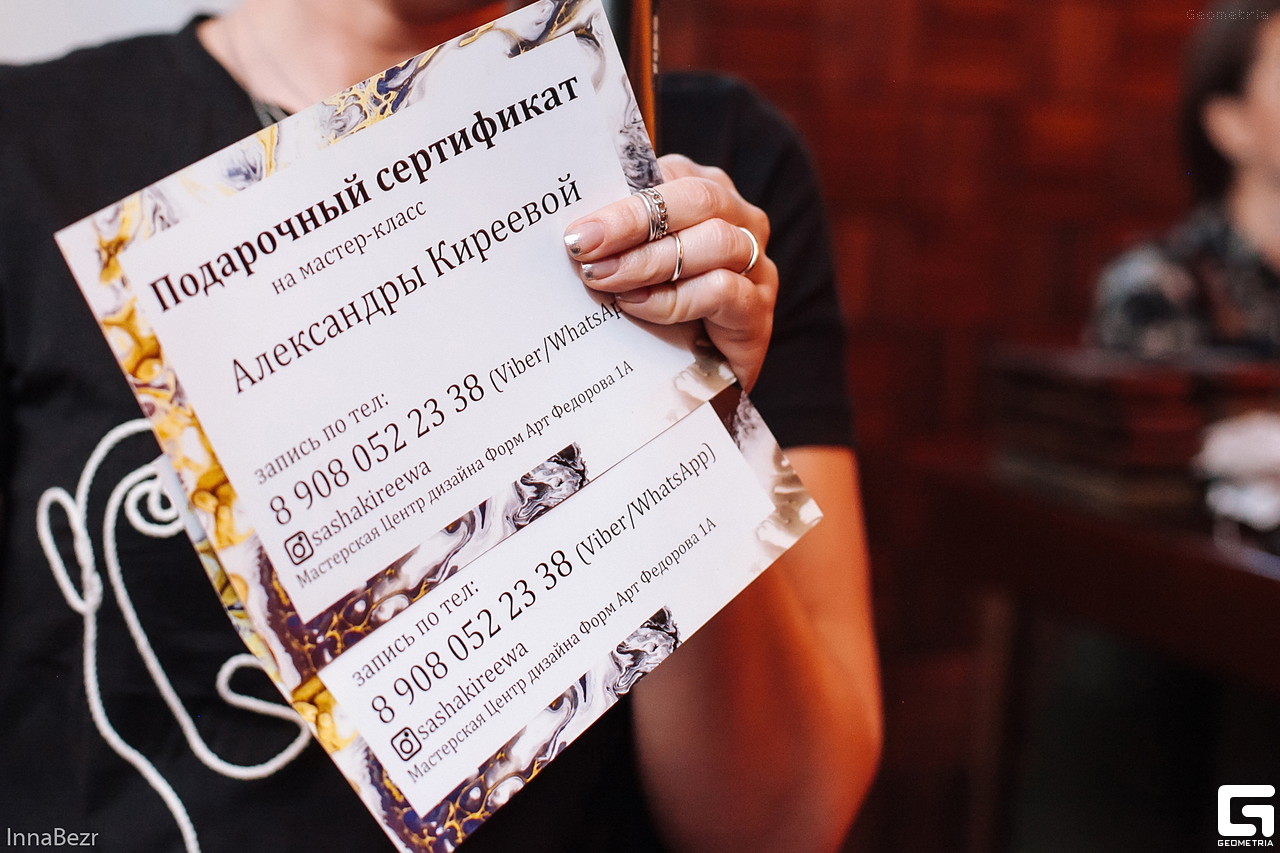 Geometria
Подарочный сертификат
на мастер-класс
Александры Киреевой
запись по тел:
8 908 052 23 38 (Viber/WhatsAp
sashakireewa
Мастерская Центр дизайна Форм Арт Федорова 1А
запись по тел:
8 908 052 23 38 (Viber/WhatsApp)
sashakireewa
Мастерская Центр дизайна Форм Арт Федорова 1А
InnaBezr
GEOMETRIA